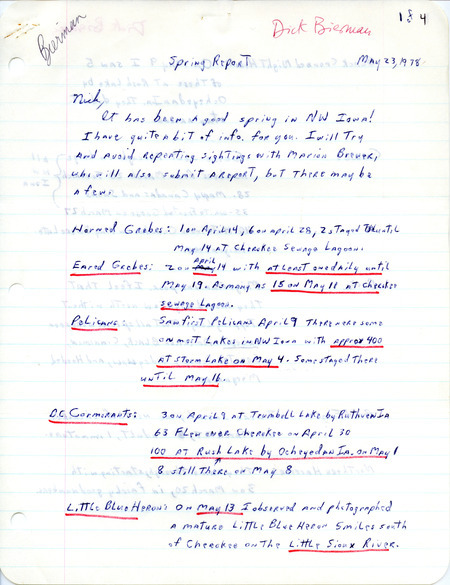 Bierman
Dick Bierman
1 of 4
Spring Report May 23, 1978
Nick,
It has been a good spring in NW Iowa!
I have quite a bit of info. for you. I will try
and avoid repeating sightings with Marion Brewer,
who will also submit a report, but there may be
a few.
Horned Grebes: 1 on April 14, 6 on April 28, 2 stayed until
May 14 at Cherokee Sewage Lagoon.
Eared Grebes: 2 on April 14 with at least one daily until
May 19. As many as 15 on May 11 at Cherokee
sewage Lagoon.
Pelicans: Saw first Pelicans April 9 There were some
on most Lakes in NW Iowa with approx 400
at Storm Lake on May 4. Some stayed there
until May 16.
D.C. Cormorants: 3 on April 9 at Trumbull Lake by Ruthven Ia
63 Flew over Cherokee on April 30
100 at Rush Lake by Ocheyedan Ia. on May 1
8 still there on May 8
Little Blue Herons On May 13 I observed and photographed
a mature Little Blue Heron 5 miles south
of Cherokee on the Little Sioux River.